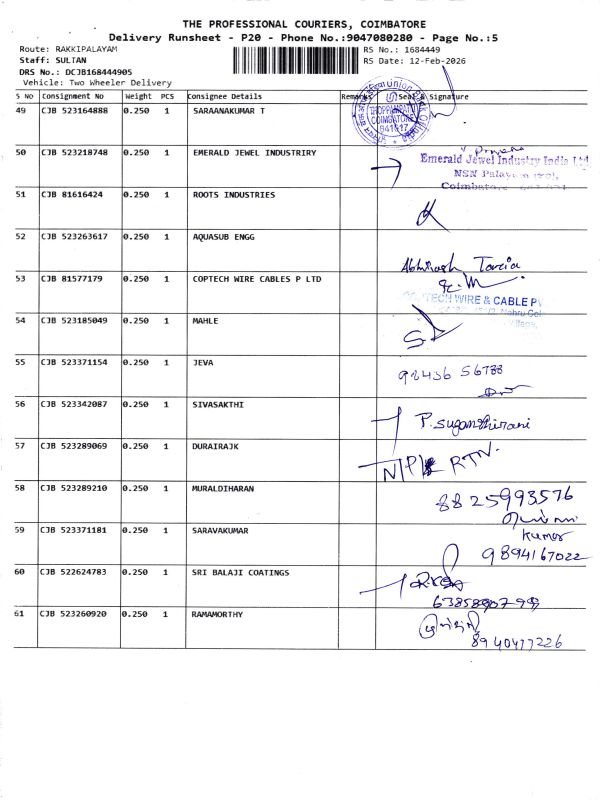 THE PROFESSIONAL COURIERS, COIMBATORE
Delivery Runsheet - P20 - Phone No.:9047080280 - Page No.:5
Route: RAKKIPALAYAM
RS No.: 1684449
Staff: SULTAN
RS Date: 12-Feb-2026
DRS No.: DCJB168444905
Vehicle: Two Wheeler Delivery
S NO Consignment No Weight PCS Consignee Details Remarks Seal & Signature
49 CJB 523164888 0.250 1 SARAANAKUMAR T
COIMBATORE
641017
50 CJB 523218748 0.250 1 EMERALD JEWEL INDUSTRIRY
Emerald Jewel Industry India Ltd
NSN Palayam
Coimbatore
51 CJB 81616424 0.250 1 ROOTS INDUSTRIES
52 CJB 523263617 0.250 1 AQUASUB ENGG
53 CJB 81577179 0.250 1 COPTECH WIRE CABLES P LTD
WIRE & CABLE
54 CJB 523185049 0.250 1 MAHLE
55 CJB 523371154 0.250 1 JEVA
56 CJB 523342087 0.250 1 SIVASAKTHI
57 CJB 523289069 0.250 1 DURAIRAJK
RTN.
58 CJB 523289210 0.250 1 MURALDIHARAN
88 25993576
59 CJB 523371181 0.250 1 SARAVAKUMAR
Kumar
9894167022
60 CJB 522624783 0.250 1 SRI BALAJI COATINGS
61 CJB 523260920 0.250 1 RAMAMORTHY
8940477226